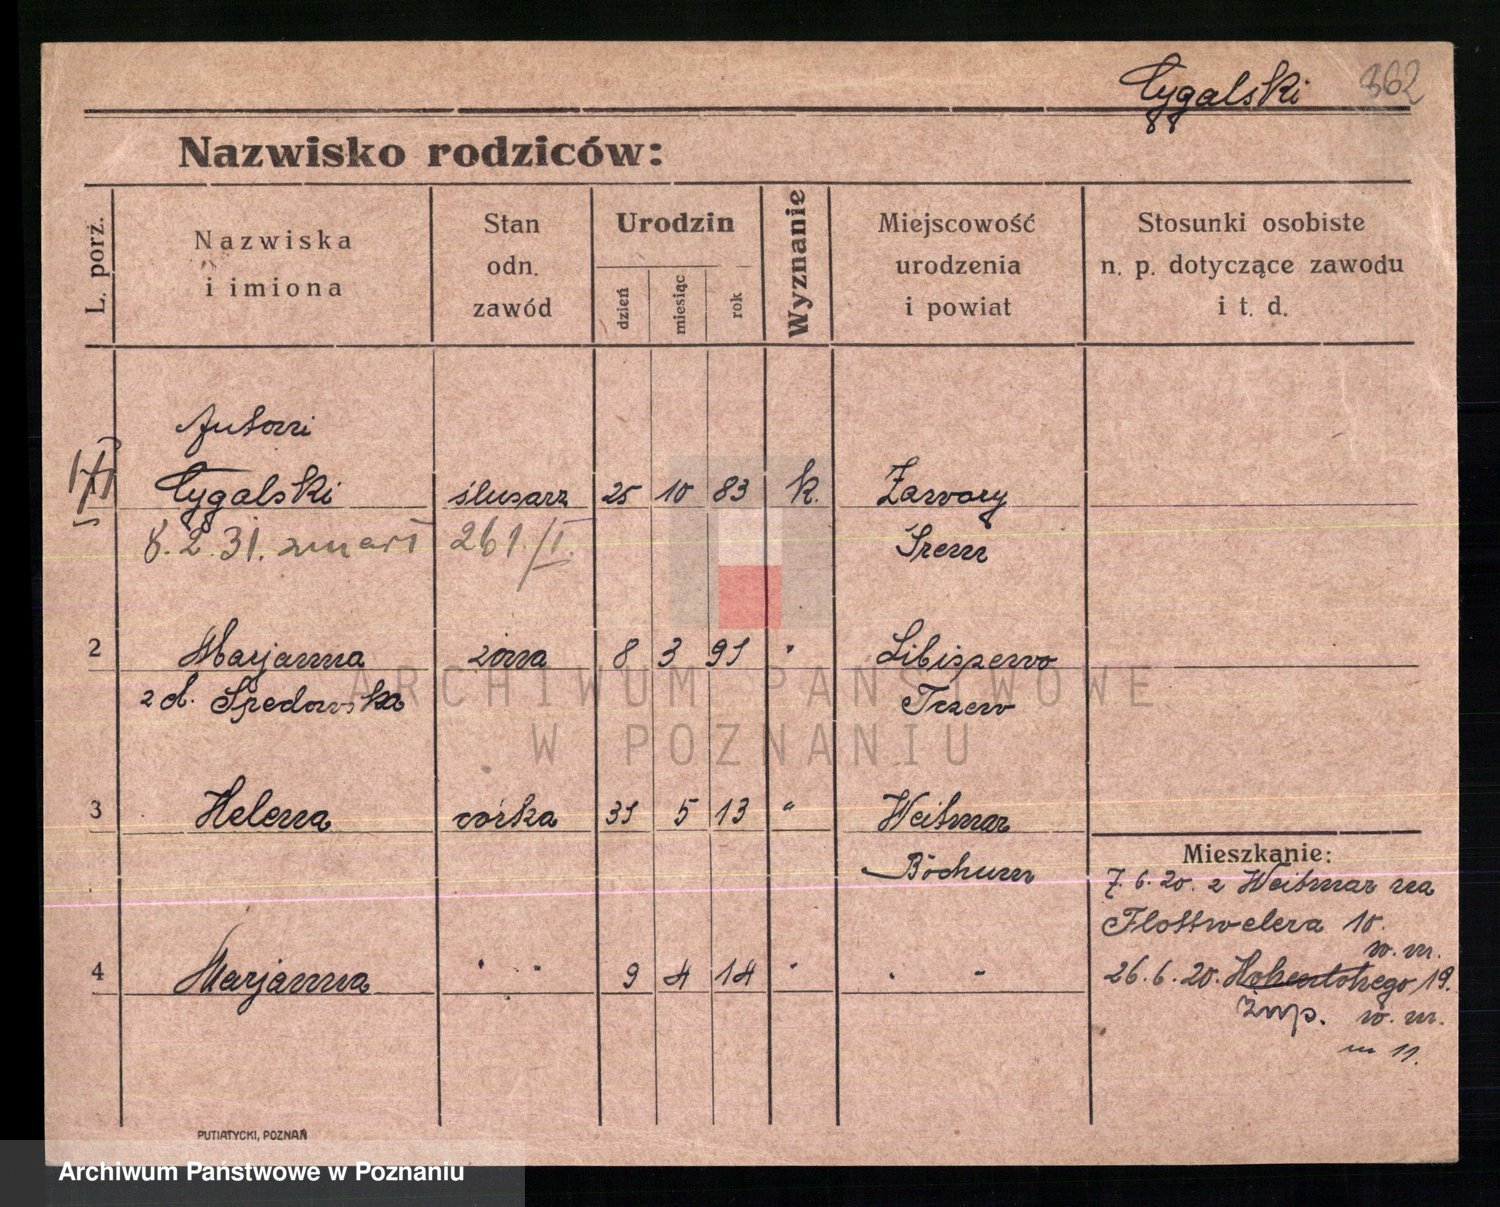 Cygalski 362
Nazwisko rodziców:
L. porz.
Nazwiska
i imiona
Stan
odn.
zawód
Urodzin
dzień
miesiąc
rok
Wyznanie
Miejscowość
urodzenia
i powiat
Stosunki osobiste
n. p. dotyczące zawodu
i t. d.
Antoni
Cygalski ślusarz 25 10 83 k. Zawory
8. 2. 31. zmarł 261/I. Śrem
2 Marjanna żona 8 3 91 " Libiszewo
z d. Spedowska Tczew
3 Helena córka 31 5 13 " Weitmar
Bochum
Mieszkanie:
7. 6. 20. z Weitmar na
Flottwelera 10.
w. m.
4 Marjanna " " 9 4 14 " " "
26. 6. 20. Hohenlohego 19.
Żup. w. m.
m 11.
PUTIATYCKI, POZNAŃ
ARCHIWUM PAŃSTWOWE
W POZNANIU
Archiwum Państwowe w Poznaniu